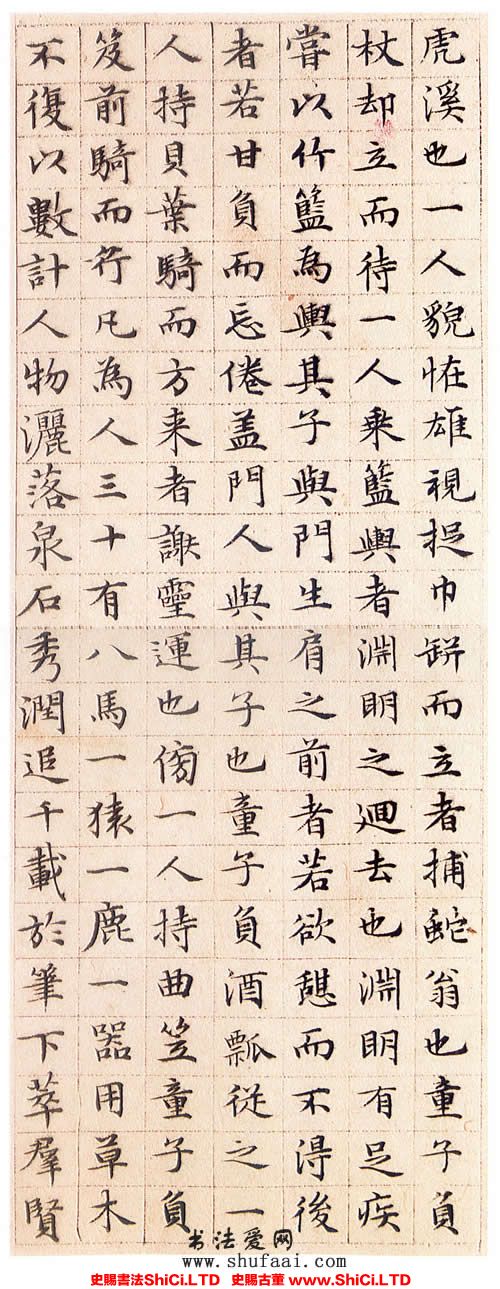 虎溪也一人貌恠雄視捉巾缾而立者捕蛇翁也童子負
杖却立而待一人乘籃輿者淵明之迴去也淵明有足疾
嘗以竹籃為輿其子與門生肩之前者若欲憩而不得後
者若甘負而忘倦盖門人與其子也童子負酒瓢從之一
人持貝葉騎而方来者謝靈運也傍一人持曲笠童子負
笈前騎而行凡為人三十有八馬一猿一鹿一器用草木
不復以數計人物灑落泉石秀潤追千載於筆下萃羣賢
书法爱网
www.shufaai.com
史賜書法ShiCi.LTD 史賜古董 www.ShiCi.LTD